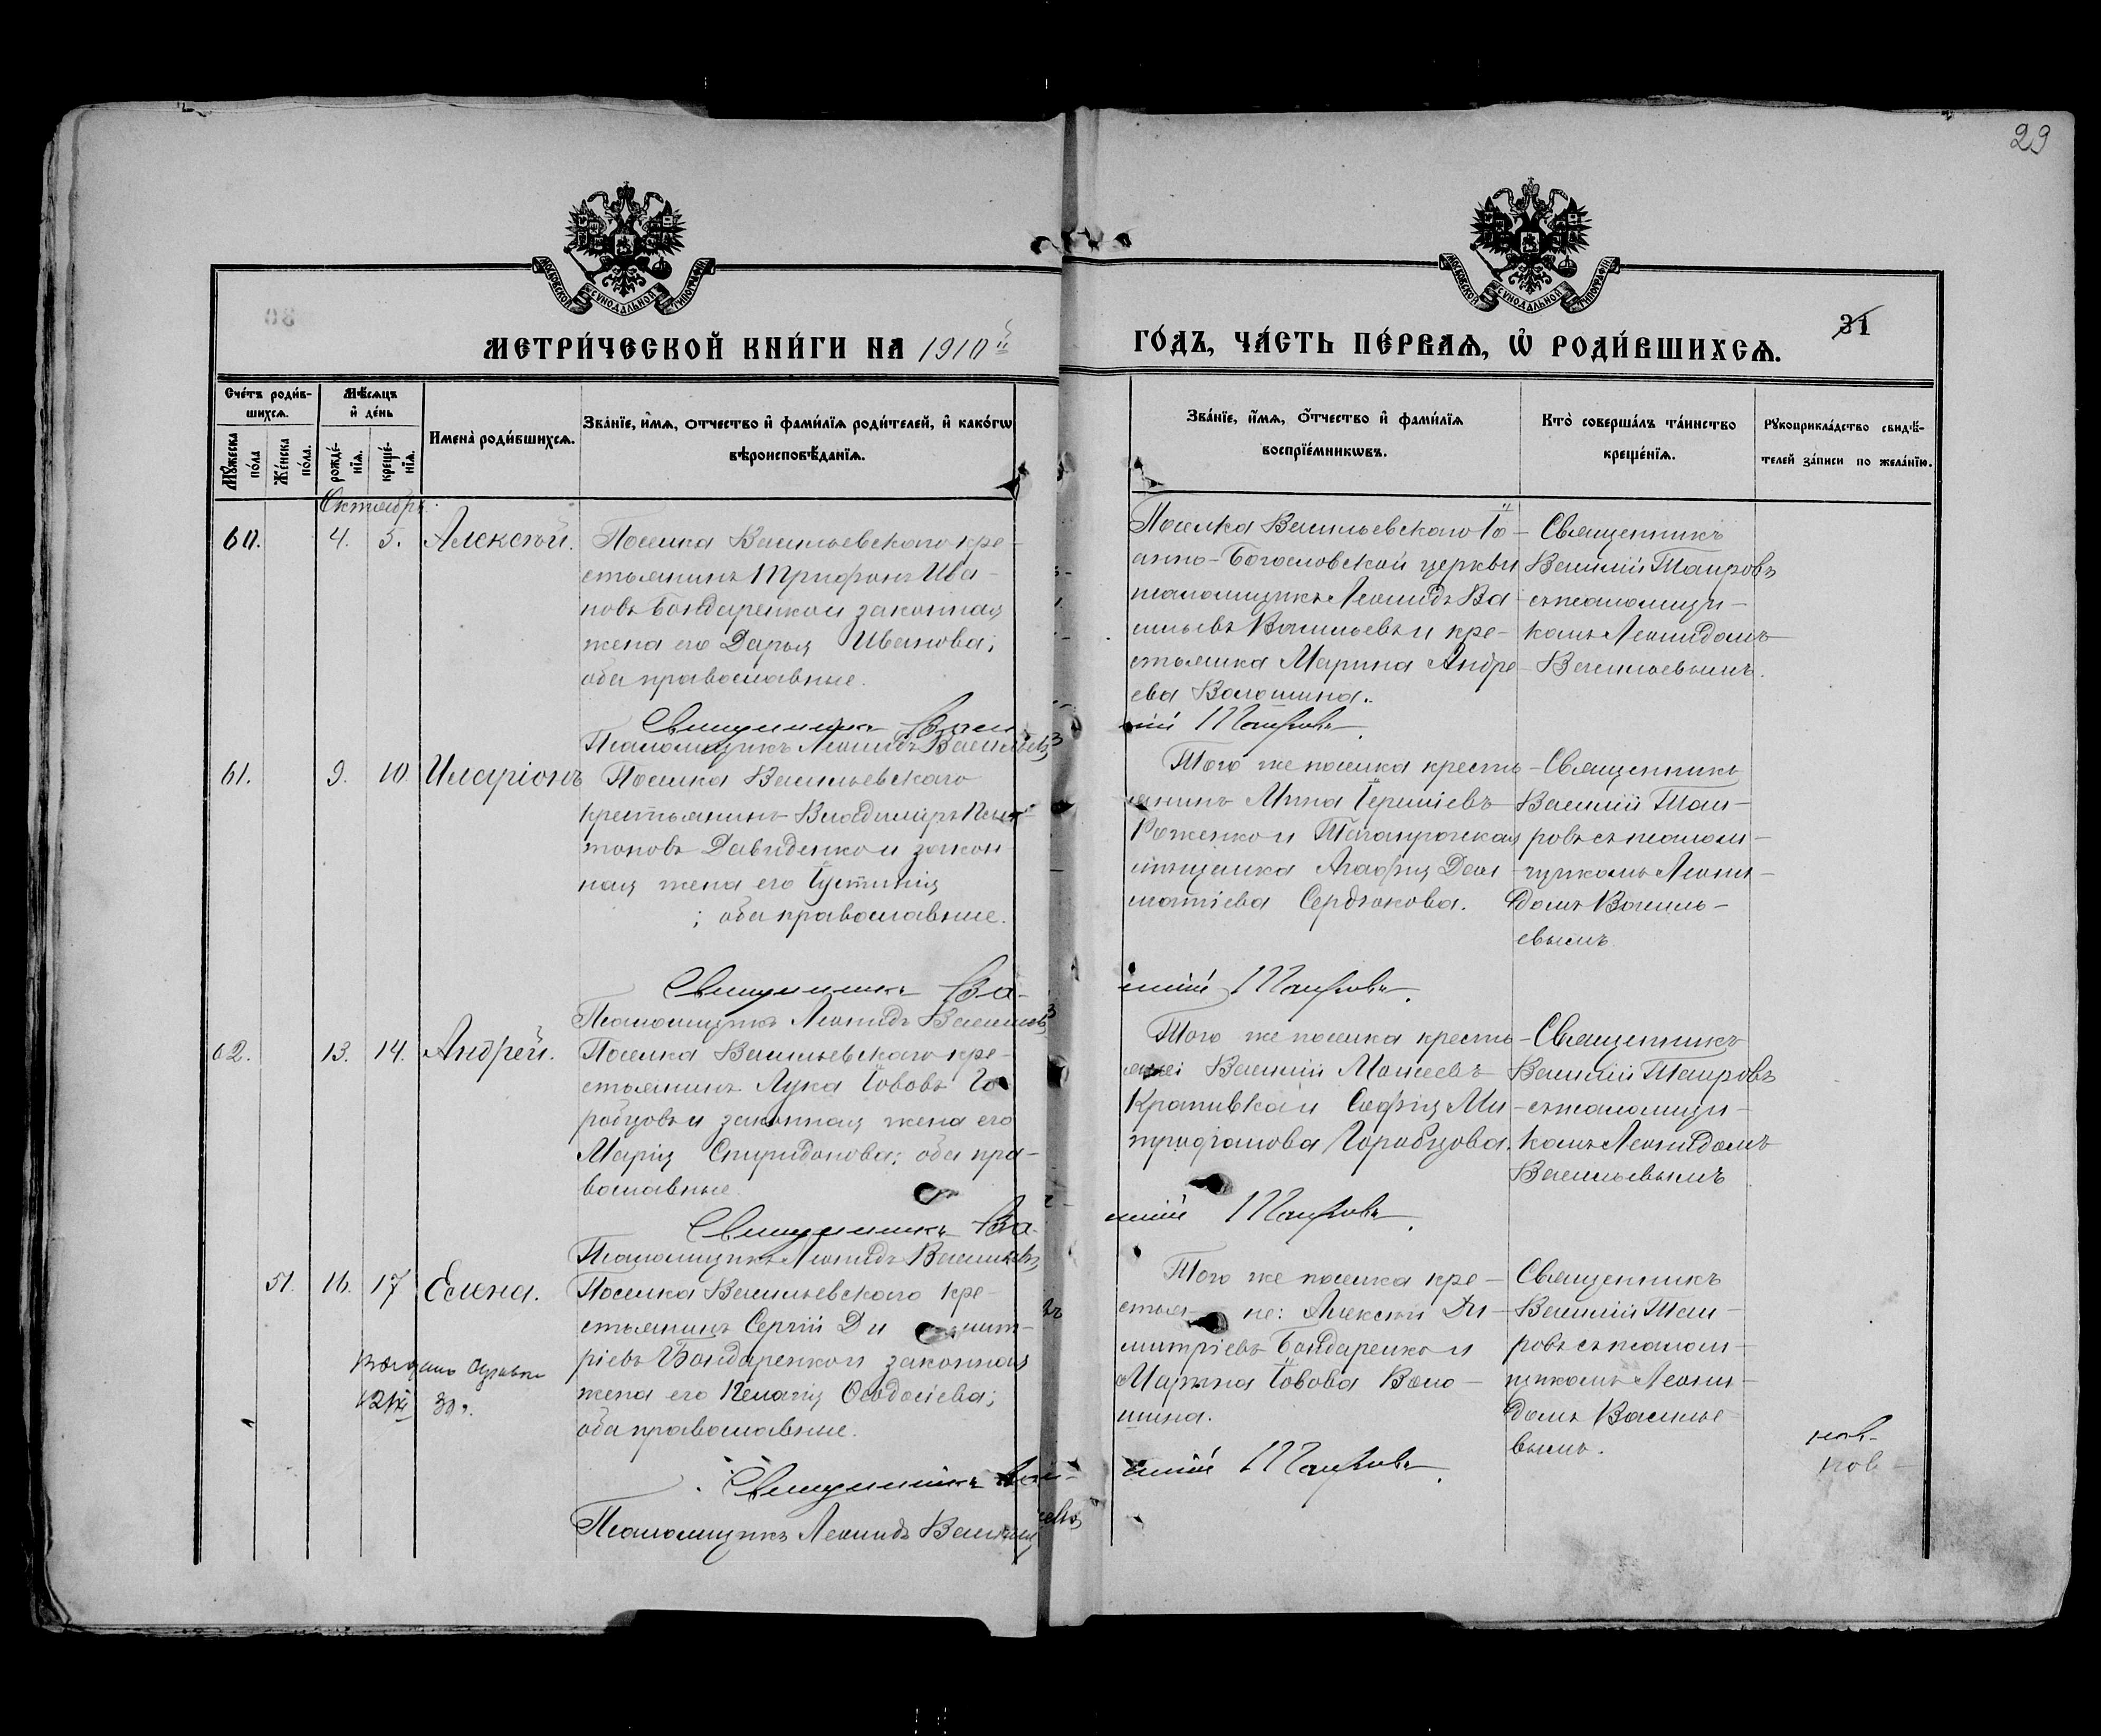 29
МОСКОВСКОЙ СѴНОДАЛЬНОЙ ТИПОГРАФІИ
МОСКОВСКОЙ СѴНОДАЛЬНОЙ ТИПОГРАФІИ
30
31
МЕТРИ́ЧЕСКОЙ КНИ́ГИ НА 1910й
ГО́ДЪ, ЧА́СТЬ ПЕ́РВАѦ, Ѡ҆ РОДИ́ВШИХСѦ.
Сче́тъ роди́в-
шихсѧ.
Мꙋ́жеска
по́ла
Же́нска
по́ла.
Мѣ́сѧцъ
и҆ де́нь
рожде́-
нїѧ.
креще́-
нїѧ.
Имена̀ роди́вшихсѧ.
Зва́нїе, и҆́мѧ, о҆́тчество и҆ фами́лїѧ роди́телей, и҆ како́гѡ
вѣроисповѣ́данїѧ.
Зва́нїе, и҆́мѧ, о҆́тчество и҆ фами́лїѧ
воспрїе́мникѡвъ.
Кто̀ соверша́лъ та́инство
креще́нїѧ.
Рꙋкоприкла́дство свидѣ́-
телей за́писи по жела́нїю.
Октябрь.
60. 4. 5. Алексѣй.
Поселка Васильевскаго кре-
стьянинъ Трифонъ Ива-
новъ Бондаренко и законная
жена его Дарья Иванова;
оба православные.
Священникъ Васи
Псаломщикъ Леонидъ Васильевъ
Поселка Васильевскаго Іо-
анно-Богословской церкви
псаломщикъ Леонидъ Ва-
сильевъ Васильевъ и кре-
стьянка Марина Андре-
ева Волошина.
лій Таировъ.
Священникъ
Василій Таировъ
съ псаломщи-
комъ Леонидомъ
Васильевымъ.
61. 9. 10 Иларіонъ
Поселка Васильевскаго
крестьянинъ Владиміръ Пла-
тоновъ Давиденко и закон
ная жена его Іустинія
; оба православные.
Священникъ Ва-
Псаломщикъ Леонидъ Васильевъ
Того же поселка кресть-
янинъ Мина
и Таганрогская
мѣщанка Агафія
Сердюкова.
силій Таировъ.
Священникъ
Василій Таи-
ровъ съ псалом-
щикомъ Леони-
домъ Василь-
евымъ
62. 13. 14. Андрей.
Поселка Васильевскаго кре-
стьянинъ Лука Іововъ Го-
робцовъ и законная жена его
Марія Спиридонова; оба пра-
вославные
Священникъ Ва-
Псаломщикъ Леонидъ Васильевъ
Того же поселка кресть-
Василій Моисеевъ
Крапивка и Софія Ми-
трофанова Горобцова.
силій Таировъ.
Священникъ
Василій Таировъ
съ псаломщи-
комъ Леонидомъ
Васильевымъ
51. 16. 17 Елена.
Поселка Васильевскаго кре-
стьянинъ Сергій Ди мит-
ріевъ Бондаренко и законная
жена его Пелагія Ѳеодосіева;
оба православные.
30 г.
Священникъ Васи-
Псаломщикъ Леонидъ Васильевъ
Того же поселка кре-
стья- не: Алексѣй Ди-
митріевъ Бондаренко и
Марина Іовова Воло-
шина.
силій Таировъ.
Священникъ
Василій Таи-
ровъ съ псалом-
щикомъ Леони-
домъ Василье-
вымъ.